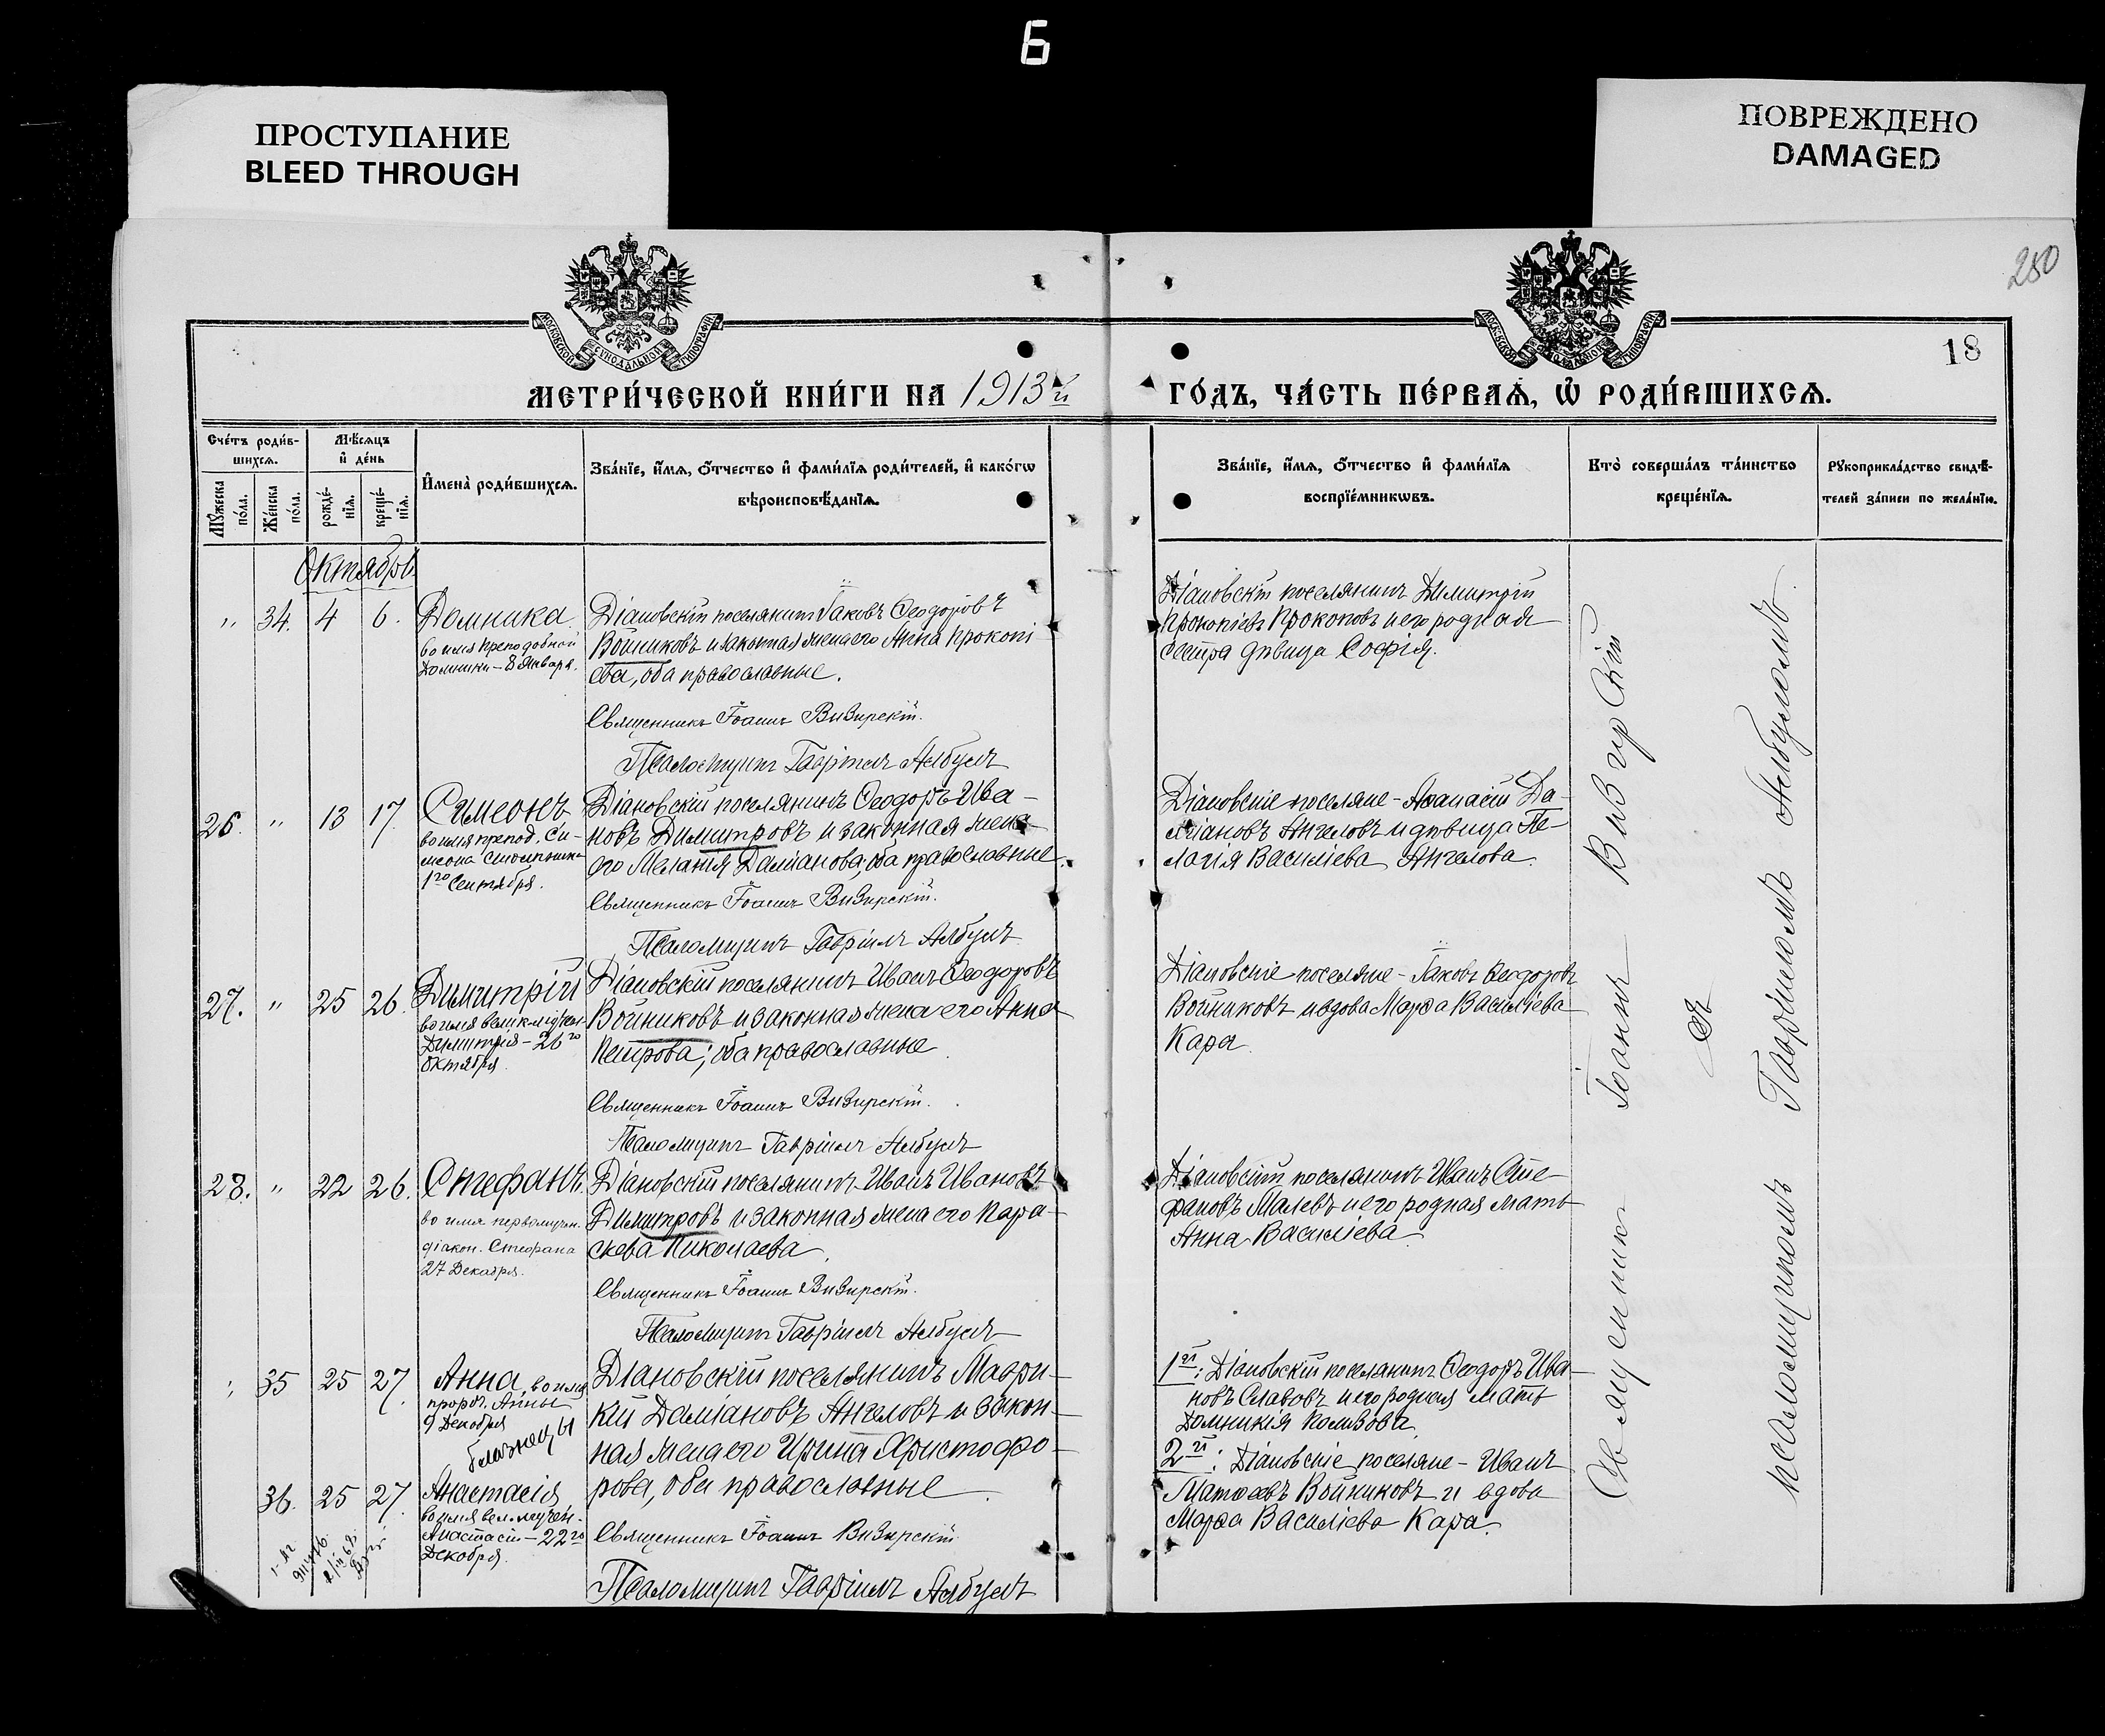 Б
ПРОСТУПАНИЕ
BLEED THROUGH
ПОВРЕЖДЕНО
DAMAGED
250
МОСКОВСКОЙ СѴНОДАЛЬНОЙ ТИПОГРАФІИ
МОСКОВСКОЙ СѴНОДАЛЬНОЙ ТИПОГРАФІИ
18
МЕТРИ́ЧЕСКОЙ КНИ́ГИ НА 1913й
ГО́ДЪ, ЧА́СТЬ ПЕ́РВАѦ, Ѡ҆ РОДИ́ВШИХСѦ.
Сче́тъ роди́в-
шихсѧ.
Мꙋ́жеска
по́ла.
Же́нска
по́ла.
Мѣ́сяцъ
и҆ де́нь
рожде́-
нїѧ.
креще́-
нїѧ.
И҆мена̀ роди́вшихсѧ.
Зва́нїе, и҆́мѧ, ѻ҆́тчество и҆ фами́лїѧ роди́телей, и҆ како́гѡ
вѣроисповѣ́данїѧ.
Зва́нїе, и҆́мѧ, ѻ҆́тчество и҆ фами́лїѧ
воспрїе́мникѡвъ.
Кто̀ соверша́лъ та́инство
креще́нїѧ.
Рꙋкоприкла́дство свидѣ́-
телей за́писи по жела́нїю.
Октябрь
„ 34. 4 6.
Домника.
во имя преподобной
Домники – 8 Января.
Діановскій поселянинъ Іаковъ Ѳеодоровъ
Войниковъ и законная жена его Анна Прокопі
ева, оба православные.
Священникъ Іоаннъ Визирскій.
Псаломщикъ Гавріилъ Албулъ
Діановскій поселянинъ Димитрій
Прокопіевъ Прокоповъ и его родная
сестра дѣвица Софія.
26. „ 13 17.
Симеонъ
во имя препод. Си-
меона Столпника
1го Сентября.
Діановскій поселянинъ Ѳеодоръ Ива-
новъ Димитровъ и законная жена
его Меланія Даміанова, оба православные.
Священникъ Іоаннъ Визирскій.
Псаломщикъ Гавріилъ Албулъ
Діановскіе поселяне – Аѳанасій Да-
міановъ Ангеловъ и дѣвица Пе-
лагія Василіева Ангелова.
27. „ 25 26.
Димитрій
во имя великмучен.
Димитрія – 26го
Октября.
Діановскій поселянинъ Иванъ Ѳеодоровъ
Войниковъ и законная жена его Анна
Петрова; оба православные
Священникъ Іоаннъ Визирскій.
Псаломщикъ Гавріилъ Албулъ
Діановскіе поселяне – Іаковъ Ѳеодоровъ
Войниковъ и вдова Марѳа Василіева
Кара.
28. „ 22 26.
Стефанъ.
во имя первомучен.
діакон. Стефана
27 Декабря.
Діановскій поселянинъ Иванъ Ивановъ
Димитровъ и законная жена его Пара-
скева Николаева.
Священникъ Іоаннъ Визирскій.
Псаломщикъ Гавріилъ Албулъ
Діановскій поселянинъ Иванъ Сте-
фановъ Малевъ и его родная мать
Анна Василіева.
„ 35 25 27.
Анна, во имя
прорч. Анны
9 Декабря
близнецы
36. 25 27.
Анастасія
во имя вел.мучен.
Анастасіи – 22го
Декабря.
Діановскій поселянинъ Маври-
кій Даміановъ Ангеловъ и закон-
ная жена его Ирина Христофо-
рова, оба православные.
Священникъ Іоаннъ Визирскій
Псаломщикъ Гавріилъ Албулъ
1й: Діановскій поселянинъ Ѳеодоръ Ива-
новъ Славовъ и его родная мать
Домникія
2й: Діановскіе поселяне – Иванъ
Матѳеевъ Войниковъ и вдова
Марѳа Василіева Кара.
Священникъ Іоаннъ Визирскій
съ
псаломщикомъ Гавріиломъ Албуломъ.